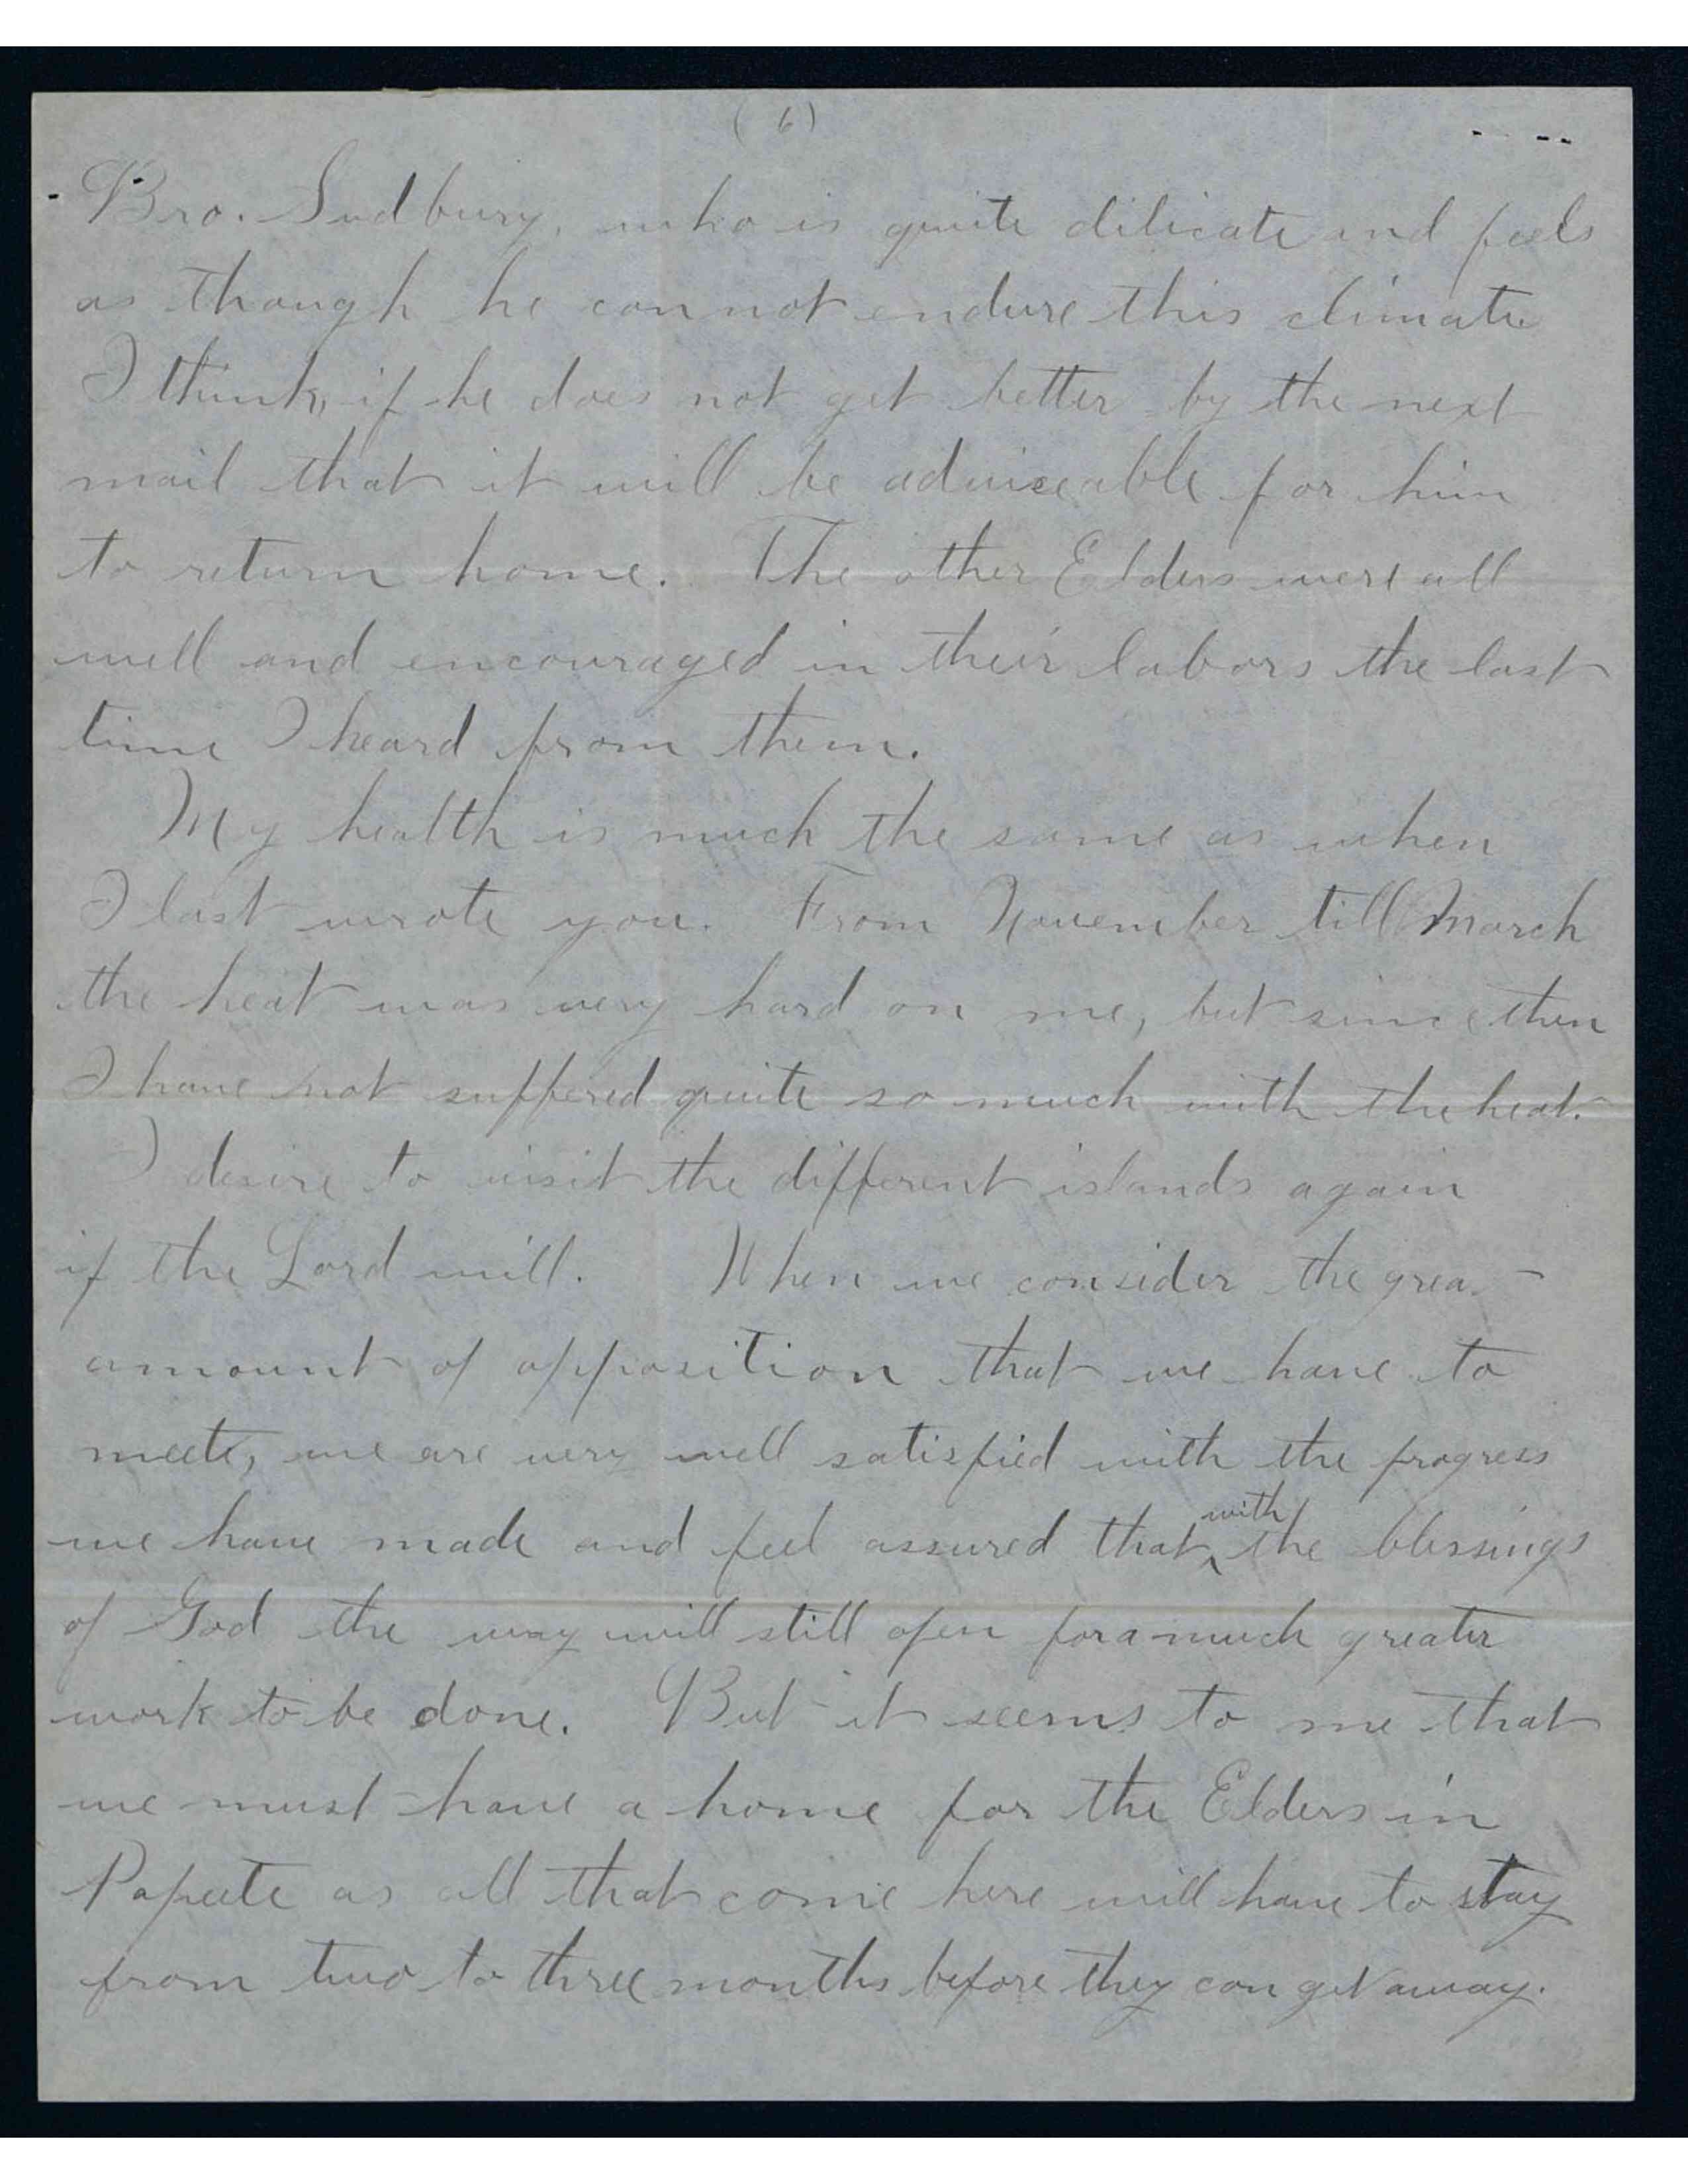 (6)
Bro. Sudbury, who is quite dilicate and feels
as though he can not endure this climate
I think, if he does not get better by the next
mail that it will be adviseable for him
to return home. The other Elders were all
well and encouraged in their labors the last
time I heard from them.
My health is much the same as when
I last wrote you. From November till March
the heat was very hard on me, but since then
I have not suffered quite so much with the heat.
I desire to visit the different islands again
if the Lord will. When we consider the great
amount of opposition that we have to
meete, we are very well satisfied with the progress
we have made and feel assured that with the blessings
of God the way will still open for a much greater
work to be done. But it seems to me that
we must have a home for the Elders in
Papeete as all that come here will have to stay
from two to three months before they can get away.